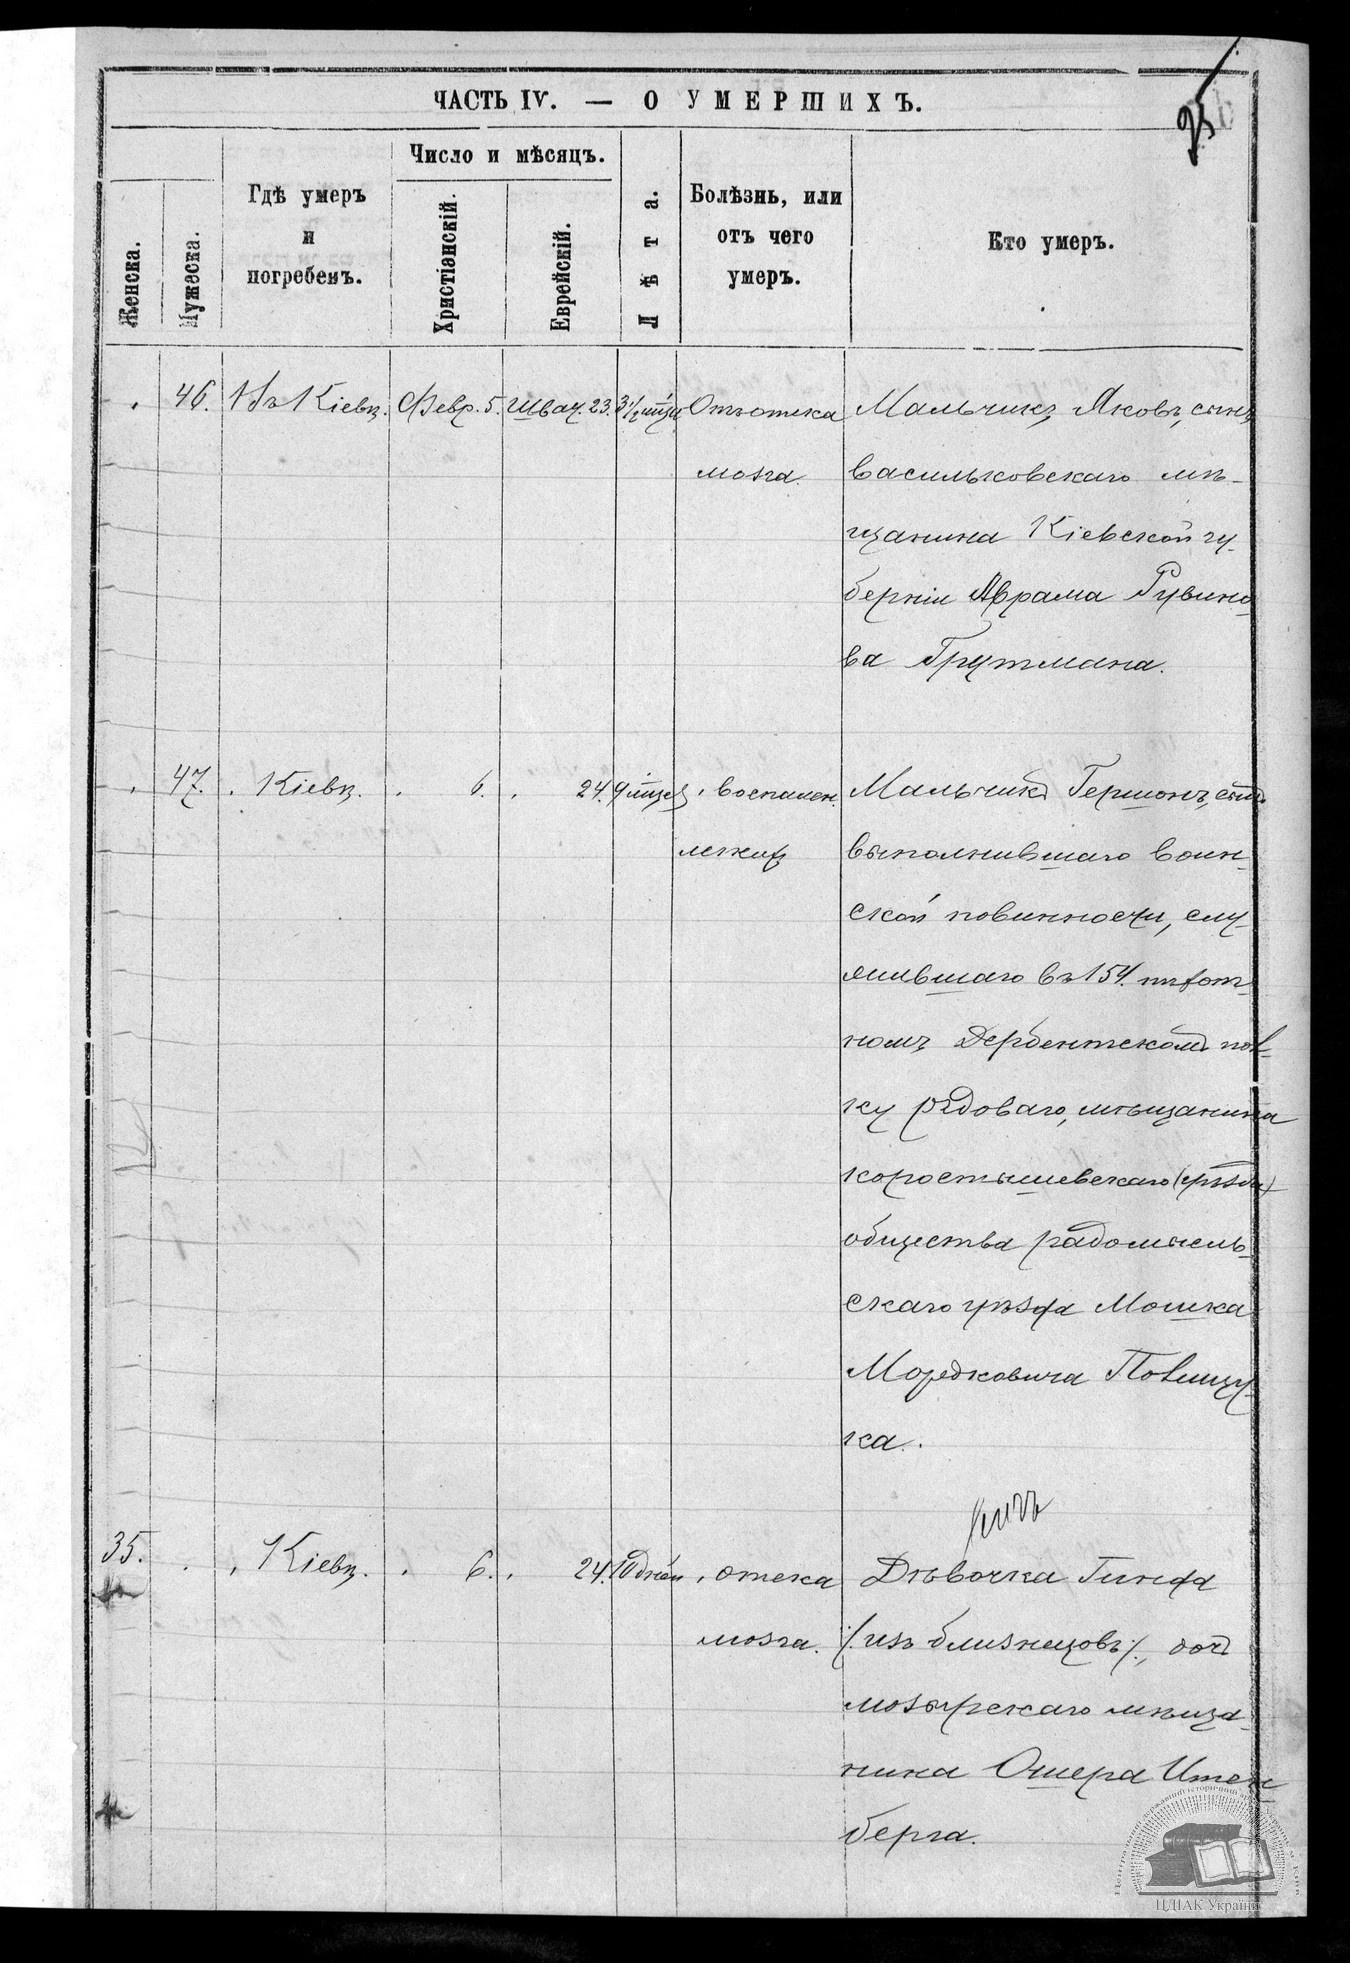 ЧАСТЬ IV. — О УМЕРШИХЪ.
95
Женска.
Мужеска.
Гдѣ умеръ
и
погребенъ.
Число и мѣсяцъ.
Христіанскій.
Еврейскій.
Лѣта.
Болѣзнь, или
отъ чего
умеръ.
Кто умеръ.
46. Въ Кіевѣ. Февр. 5. Шват. 23. 3½ мѣся. Отъ отека Мальчикъ Яковъ, сынъ
мозга. васильковскаго мѣ-
щанина Кіевской гу-
берніи Аврама Рувино-
ва Грутмана.
47. Кіевѣ. 6. 24. 9 мѣся. воспален. Мальчикъ Гершонъ, сынъ
легкихъ выполнившаго воин-
ской повинности, слу-
жившаго въ 154. пѣхот-
номъ Дербентскомъ пол-
ку рядоваго, мѣщанина
коростышевскаго
общества радомысль-
скаго уѣзда Мошка
Мордковича Полищу-
ка.
35. Кіевѣ. 6. 24. 10 дней отека Дѣвочка Гинда
мозга. /:изъ близнецовъ:/, дочь
мозырскаго мѣща-
нина Ошера Итен-
берга.
ЦДІАК України